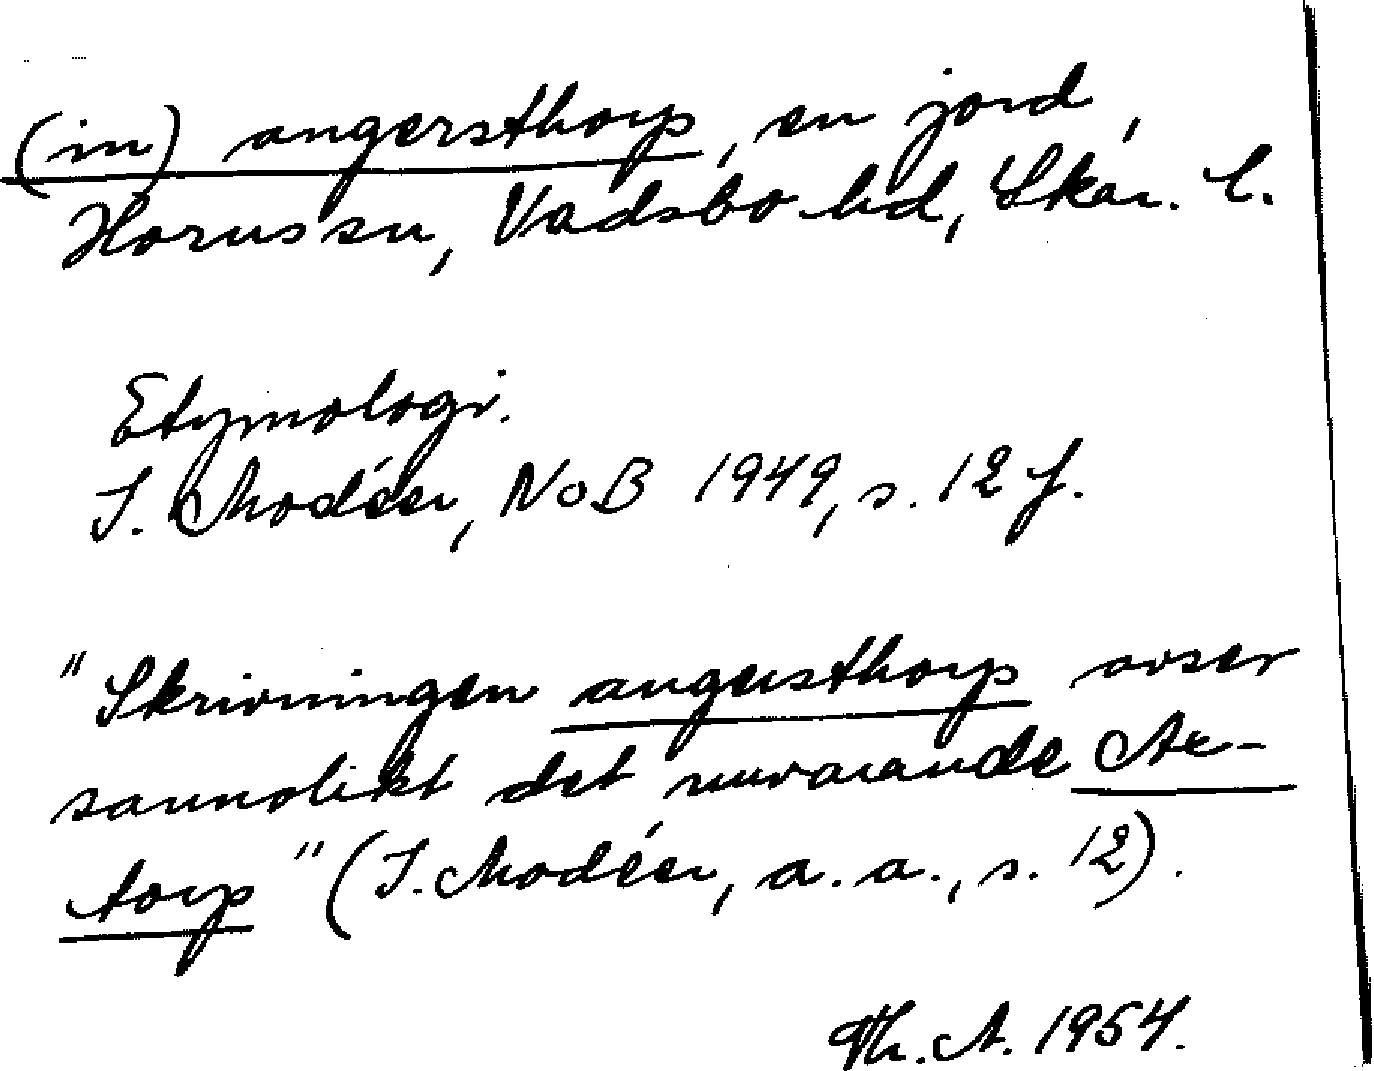 (in) angersthorp, en jord,
Horns sn, Vadsbo hd, Skar. l.
Etymologi.
I. Modéer, NoB 1949, s. 12 f.
"Skrivningen angersthorp avser
sannolikt det nuvarande
torp" (I. Modéer, a. a., s. 12).
Th. A. 1954.